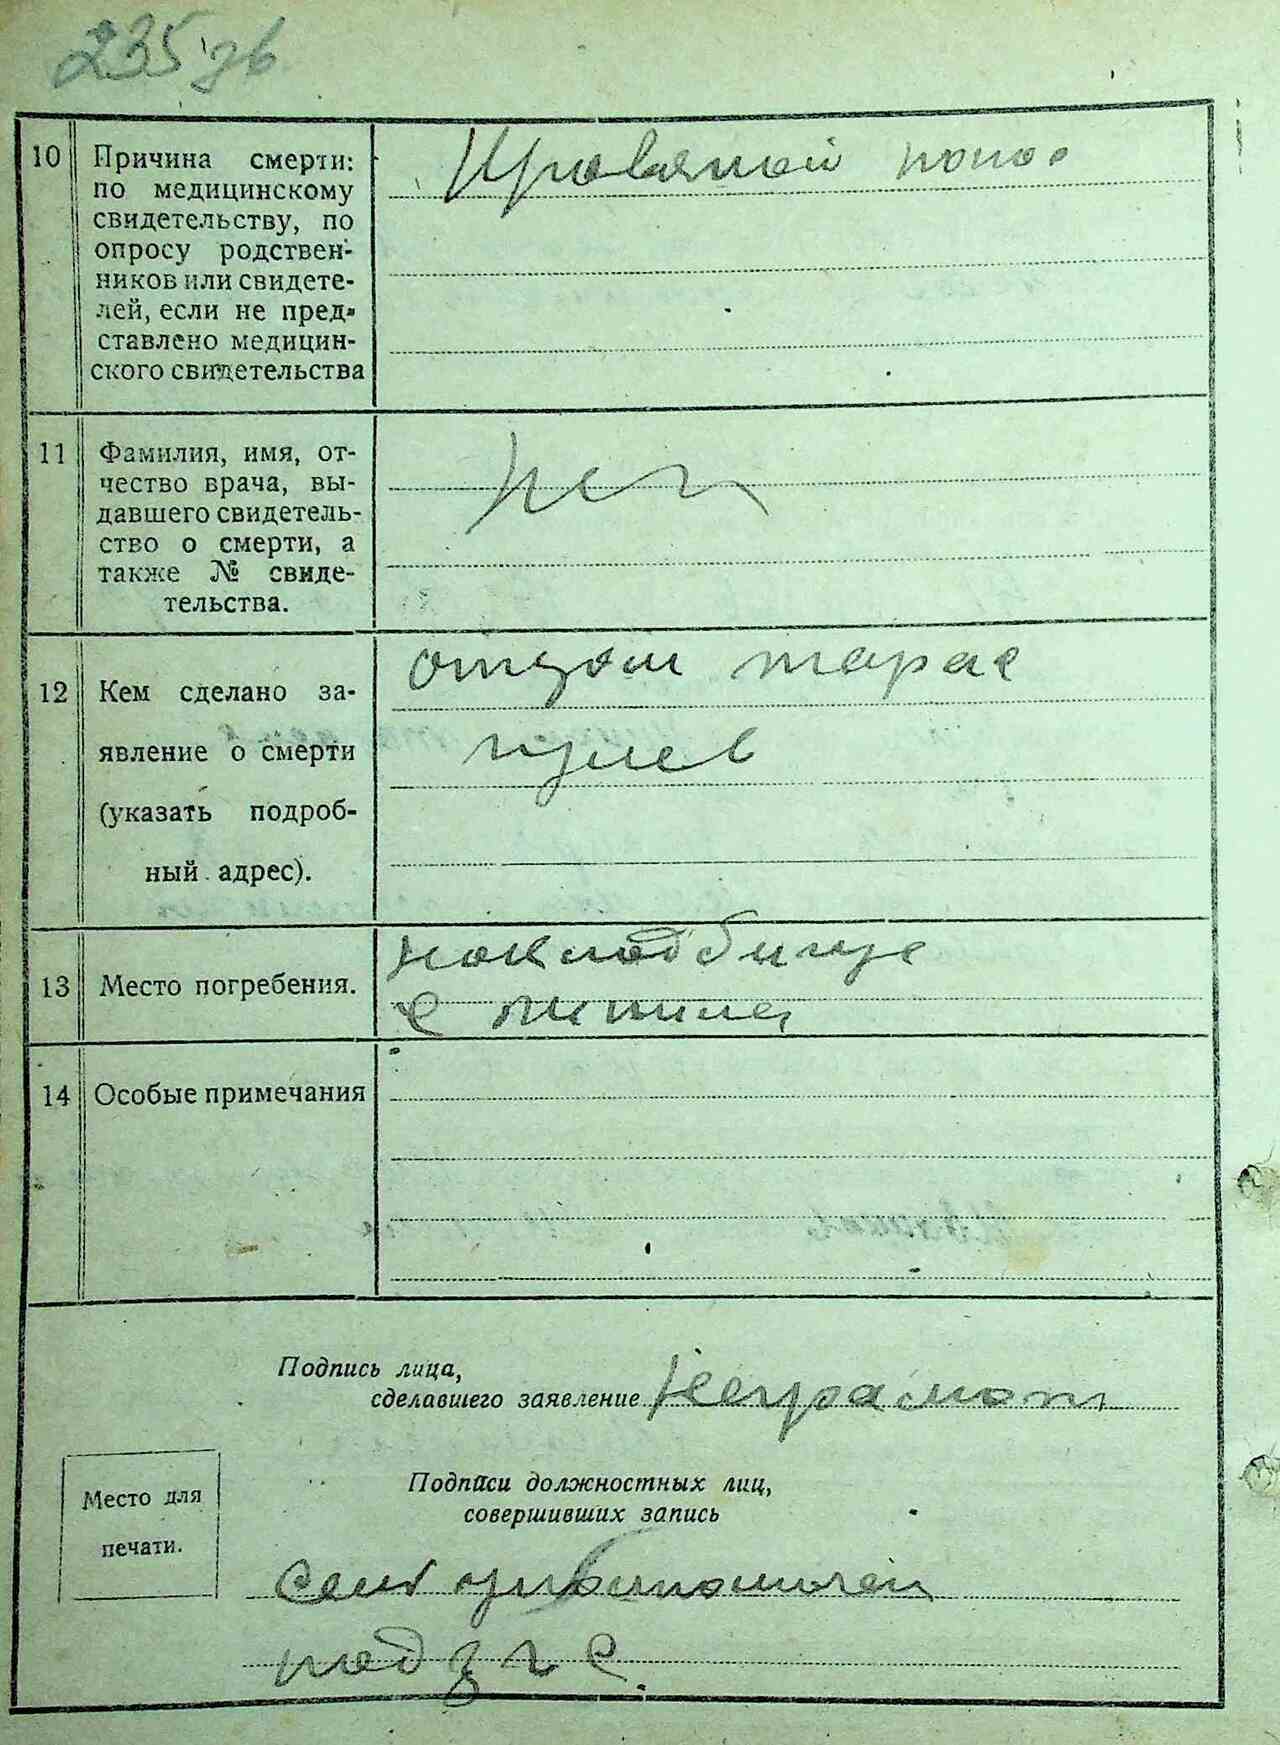 235 зв
10 Причина смерти:
по медицинскому
свидетельству, по
опросу родствен-
ников или свидете-
лей, если не пред-
ставлено медицин-
ского свидетельства
Кровяной понос
11 Фамилия, имя, от-
чество врача, вы-
давшего свидетель-
ство о смерти, а
также № свиде-
тельства.
нет
12 Кем сделано за-
явление о смерти
(указать подроб-
ный адрес).
отцом тарас
13 Место погребения.
на кладбище
с
14 Особые примечания
Подпись лица,
сделавшего заявление неграмот
Подписи должностных лиц,
совершивших запись
Место для
печати.